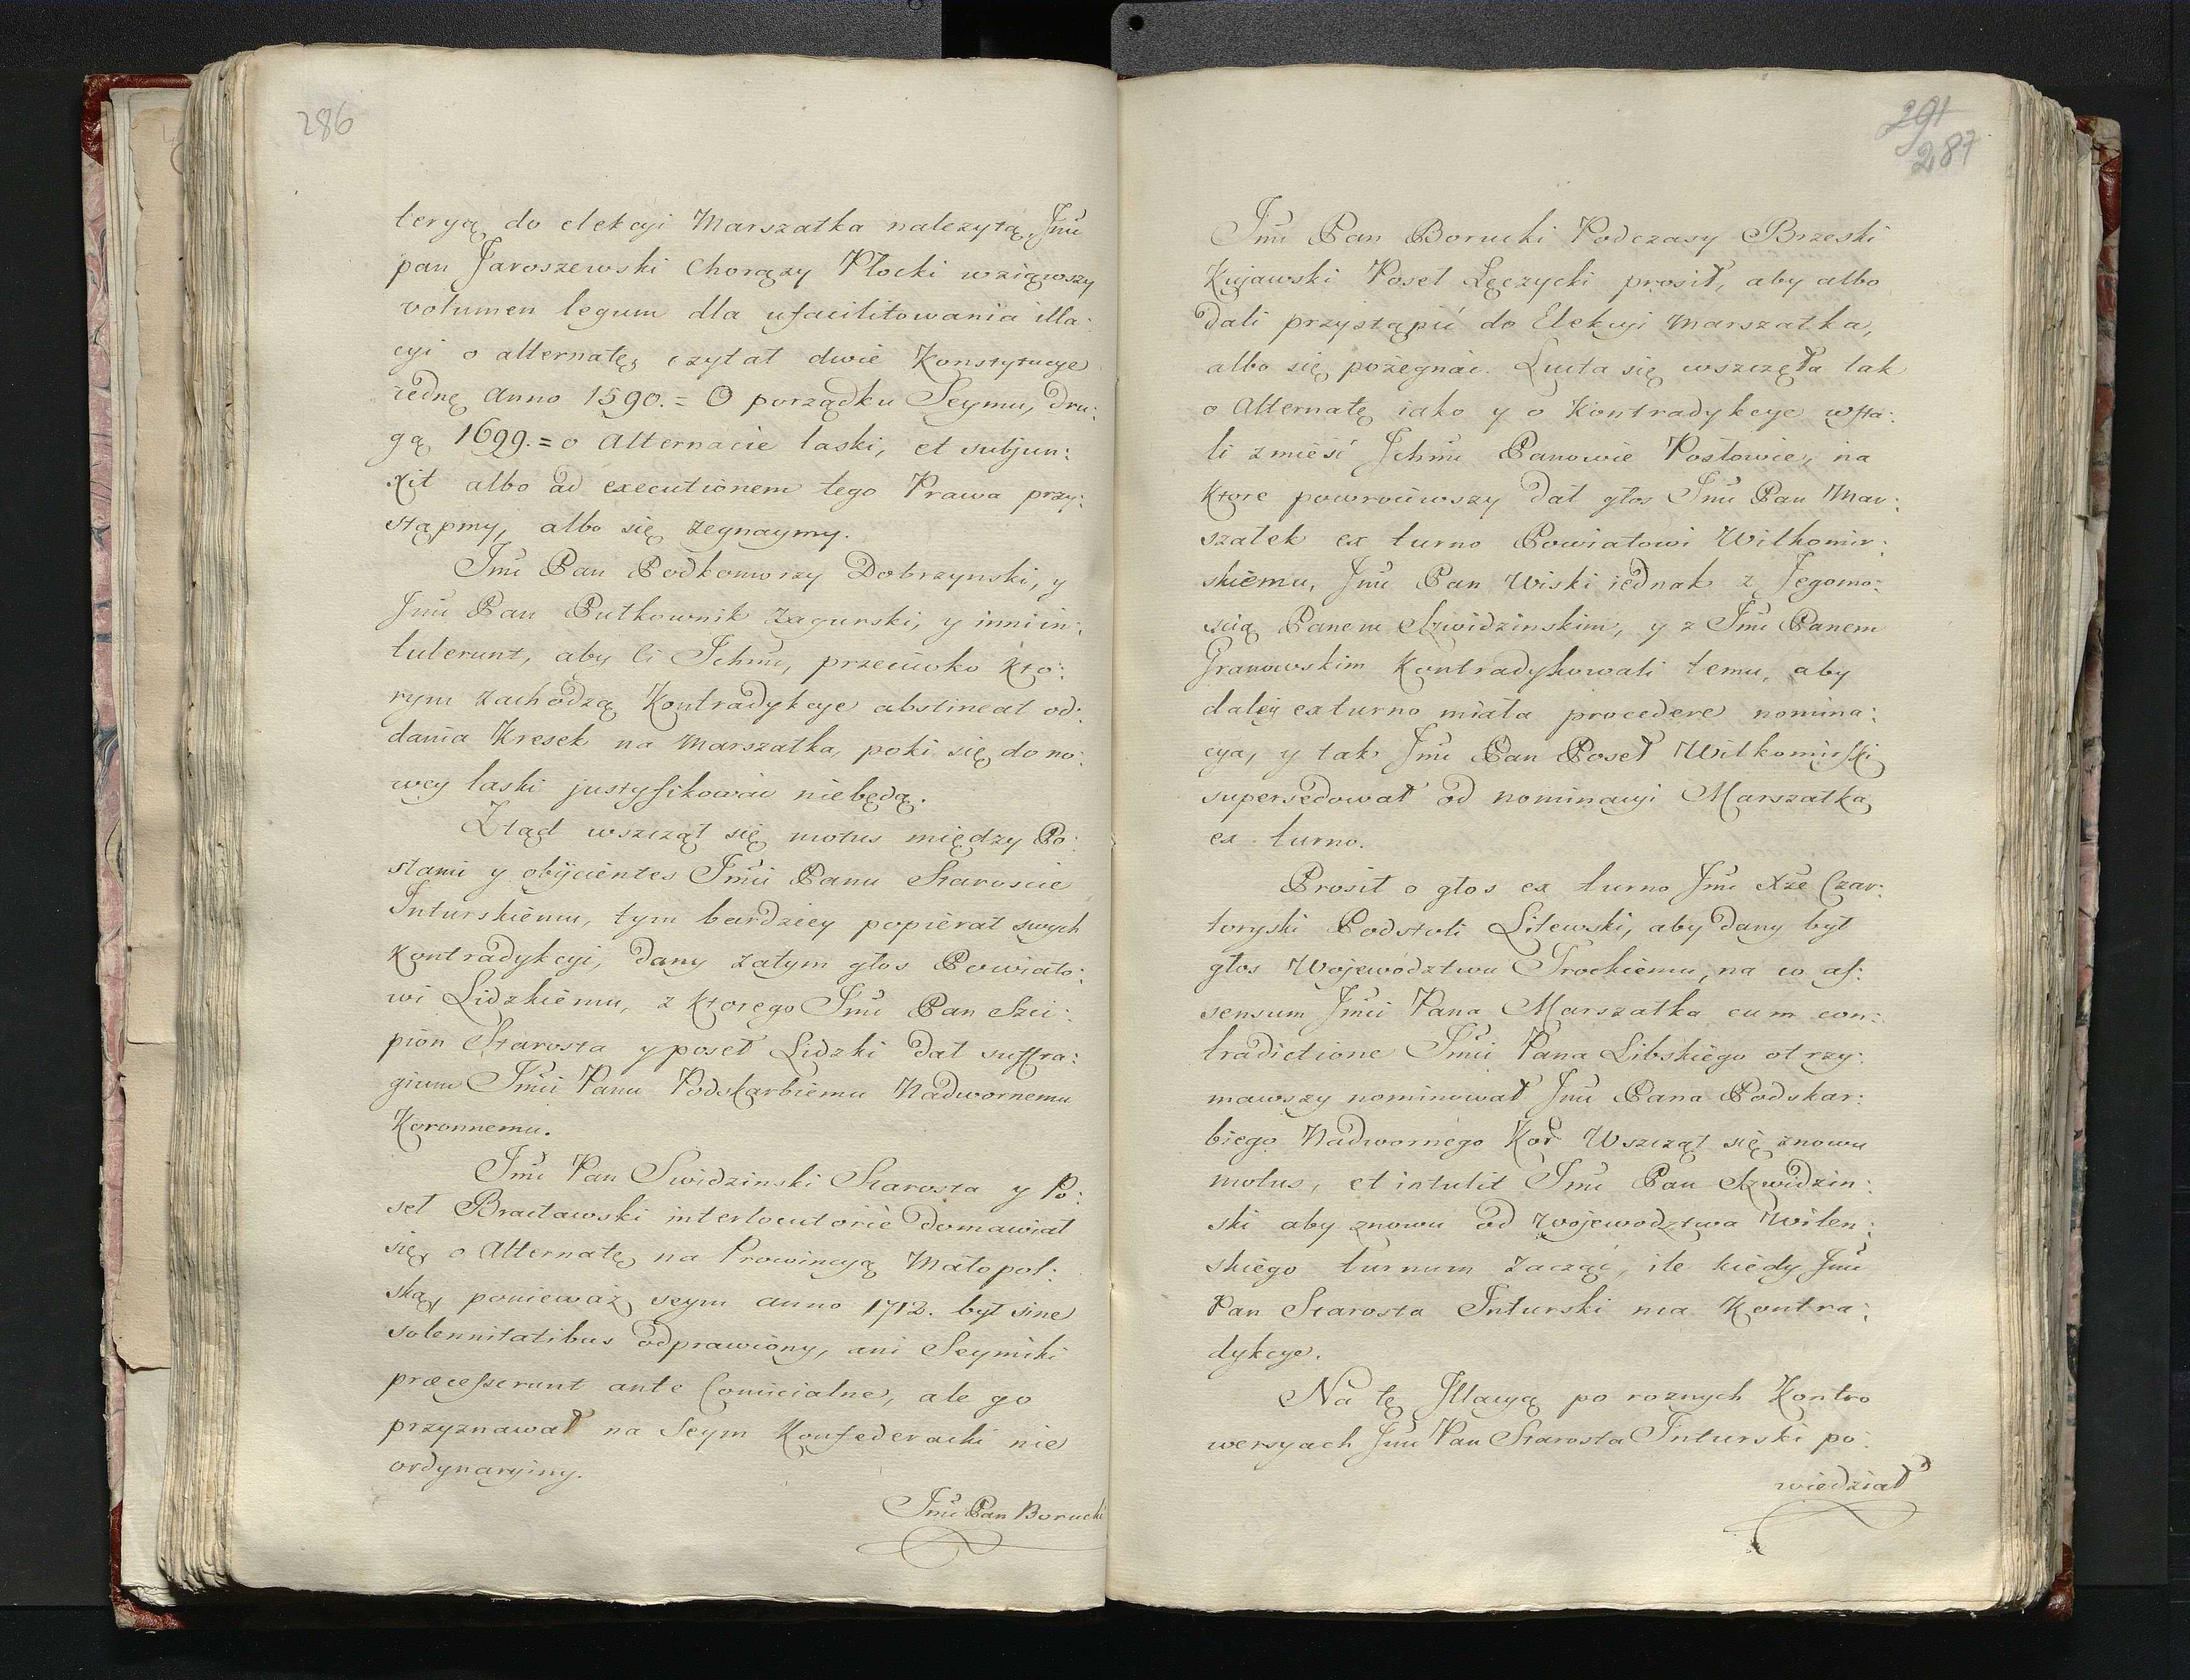 286
teryą do elekcyi Marszałka należytą, Jmć
pan Jaroszewski Chorąży Płocki wziąwszy
volumen legum dla ufacilitowania illa:
cyi o alternatę, czytał dwie Konstytucye
iednę Anno 1590. = O porządku Seymu, dru:
gą 1699. = o Alternacie laski, et subjun:
xit albo ad executionem tego Prawa przy:
stąpmy, albo się żegnaymy.
Jmć Pan Podkomorzy Dobrzynski, y
Jmć Pan Pułkownik Zagurski, y inni in:
tulerunt, aby Ci Ichmć, przeciwko kto:
rym zachodzą Kontradykcye abstineat od:
dania Kresek na Marszałka, poki się do no:
wey laski justyfikować niebędą.
Ztąd wszczął się motus między Po:
słami y obijcientes Jmći Panu Staroscie
Inturskiemu, tym bardziey popierał swych
Kontradykcyi, dany zatym głos Powiato:
wi Lidzkiemu, z ktorego Jmć Pan Sci:
pion Starosta y poseł Lidzki dał suffra:
gium Jmći Panu Podskarbiemu Nadwornemu
Koronnemu.
Jmć Pan Swidzinski Starosta y Po:
seł Bracławski interlocutorie domawiał
się o Alternatę na Prowincyą Małopol:
ską, ponieważ seym anno 1712. był sine
solennitatibus odprawiony, ani Seymiki
præcesserunt ante Comicialne, ale go
przyznawał na Seym Konfederacki nie
ordynaryiny.
Jmć Pan Borucki
291
287
Jmć Pan Borucki Podczaszy Brzeski
Kujawski Poseł Łęczycki prosił, aby albo
dali przystąpić do Elekcyi Marszałka,
albo się pożegnać. Lucta się wszczęła tak
o Alternatę iako y o Kontradykcye wsta:
li zmieść Ichmć Panowie Posłowie, na
ktore powrociwszy dał głos Jmć Pan Mar:
szałek ex turno Powiatowi Wiłkomir:
skiemu, Jmć Pan Wiski iednak z Jegomo:
scią Panem Szwidzinskim, y z Jmć Panem
Granowskim Kontradykowali temu, aby
daley ex turno miała procedere nomina:
cya, y tak Jmć Pan Poseł Wiłkomirski
supersedował od nominacyi Marszałka
ex turno.
Prosił o głos ex turno Jmć Xże Czar:
toryski Podstoli Litewski, aby dany był
głos Województwu Trockiemu, na co as:
sensum Jmći Pana Marszałka cum con:
tradictione Jmći Pana Libskiego otrzy:
mawszy nominował Jmć Pana Podskar:
biego Nadwornego Kor. Wszczął się znowu
motus, et intulit Jmć Pan Szwidzin:
ski aby znowu od Wojewodztwa Wilen:
skiego turnum zacząć, ile kiedy Jmć
Pan Starosta Inturski ma Kontra:
dykcye.
Na tę Illacyą po roznych Kontro
wersyach Jmć Pan Starosta Inturski po:
wiedział